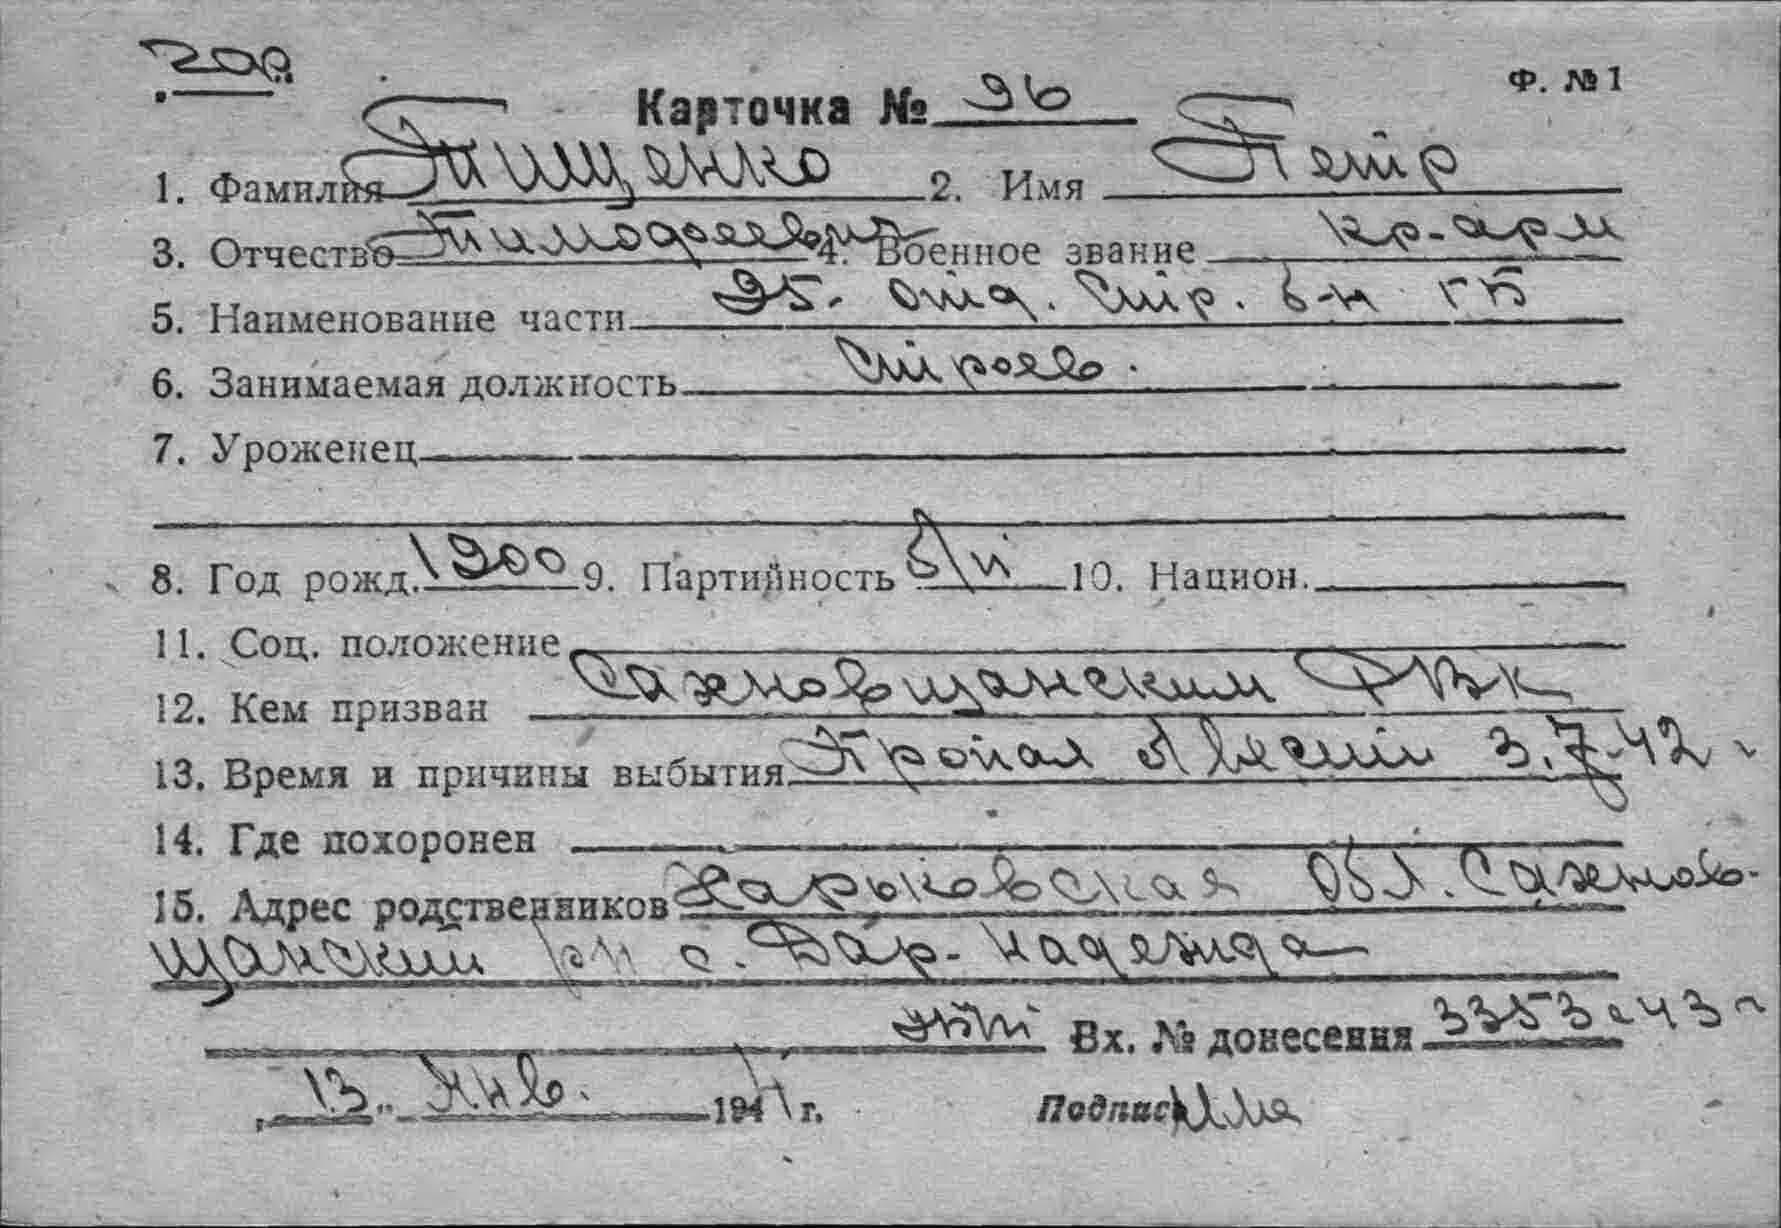 Ф. №1
Карточка № 96
1. Фамилия Тищенко 2. Имя Петр
3. Отчество Тимофеевич 4. Военное звание кр-арм
5. Наименование части 95. отд. стр. б-н ГБ
6. Занимаемая должность строев.
7. Уроженец
8. Год рожд. 1900 9. Партийность б/п 10. Национ.
11. Соц. положение
12. Кем призван Сахновщанским РВК
13. Время и причины выбытия Пропал без вести 3.7.42 г
14. Где похоронен
15. Адрес родственников Харьковская обл. Сахнов-
щанский рн с. Дар-Надежда
Вх. № донесения 3353с 43 г
„13„ Янв. 1944 г. Подпись